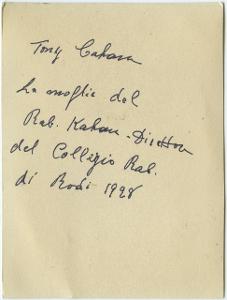 Tony Cahan
La moglie del
Rab. Kahan - Direttore
del Collegio Rab.
di Rodi 1928